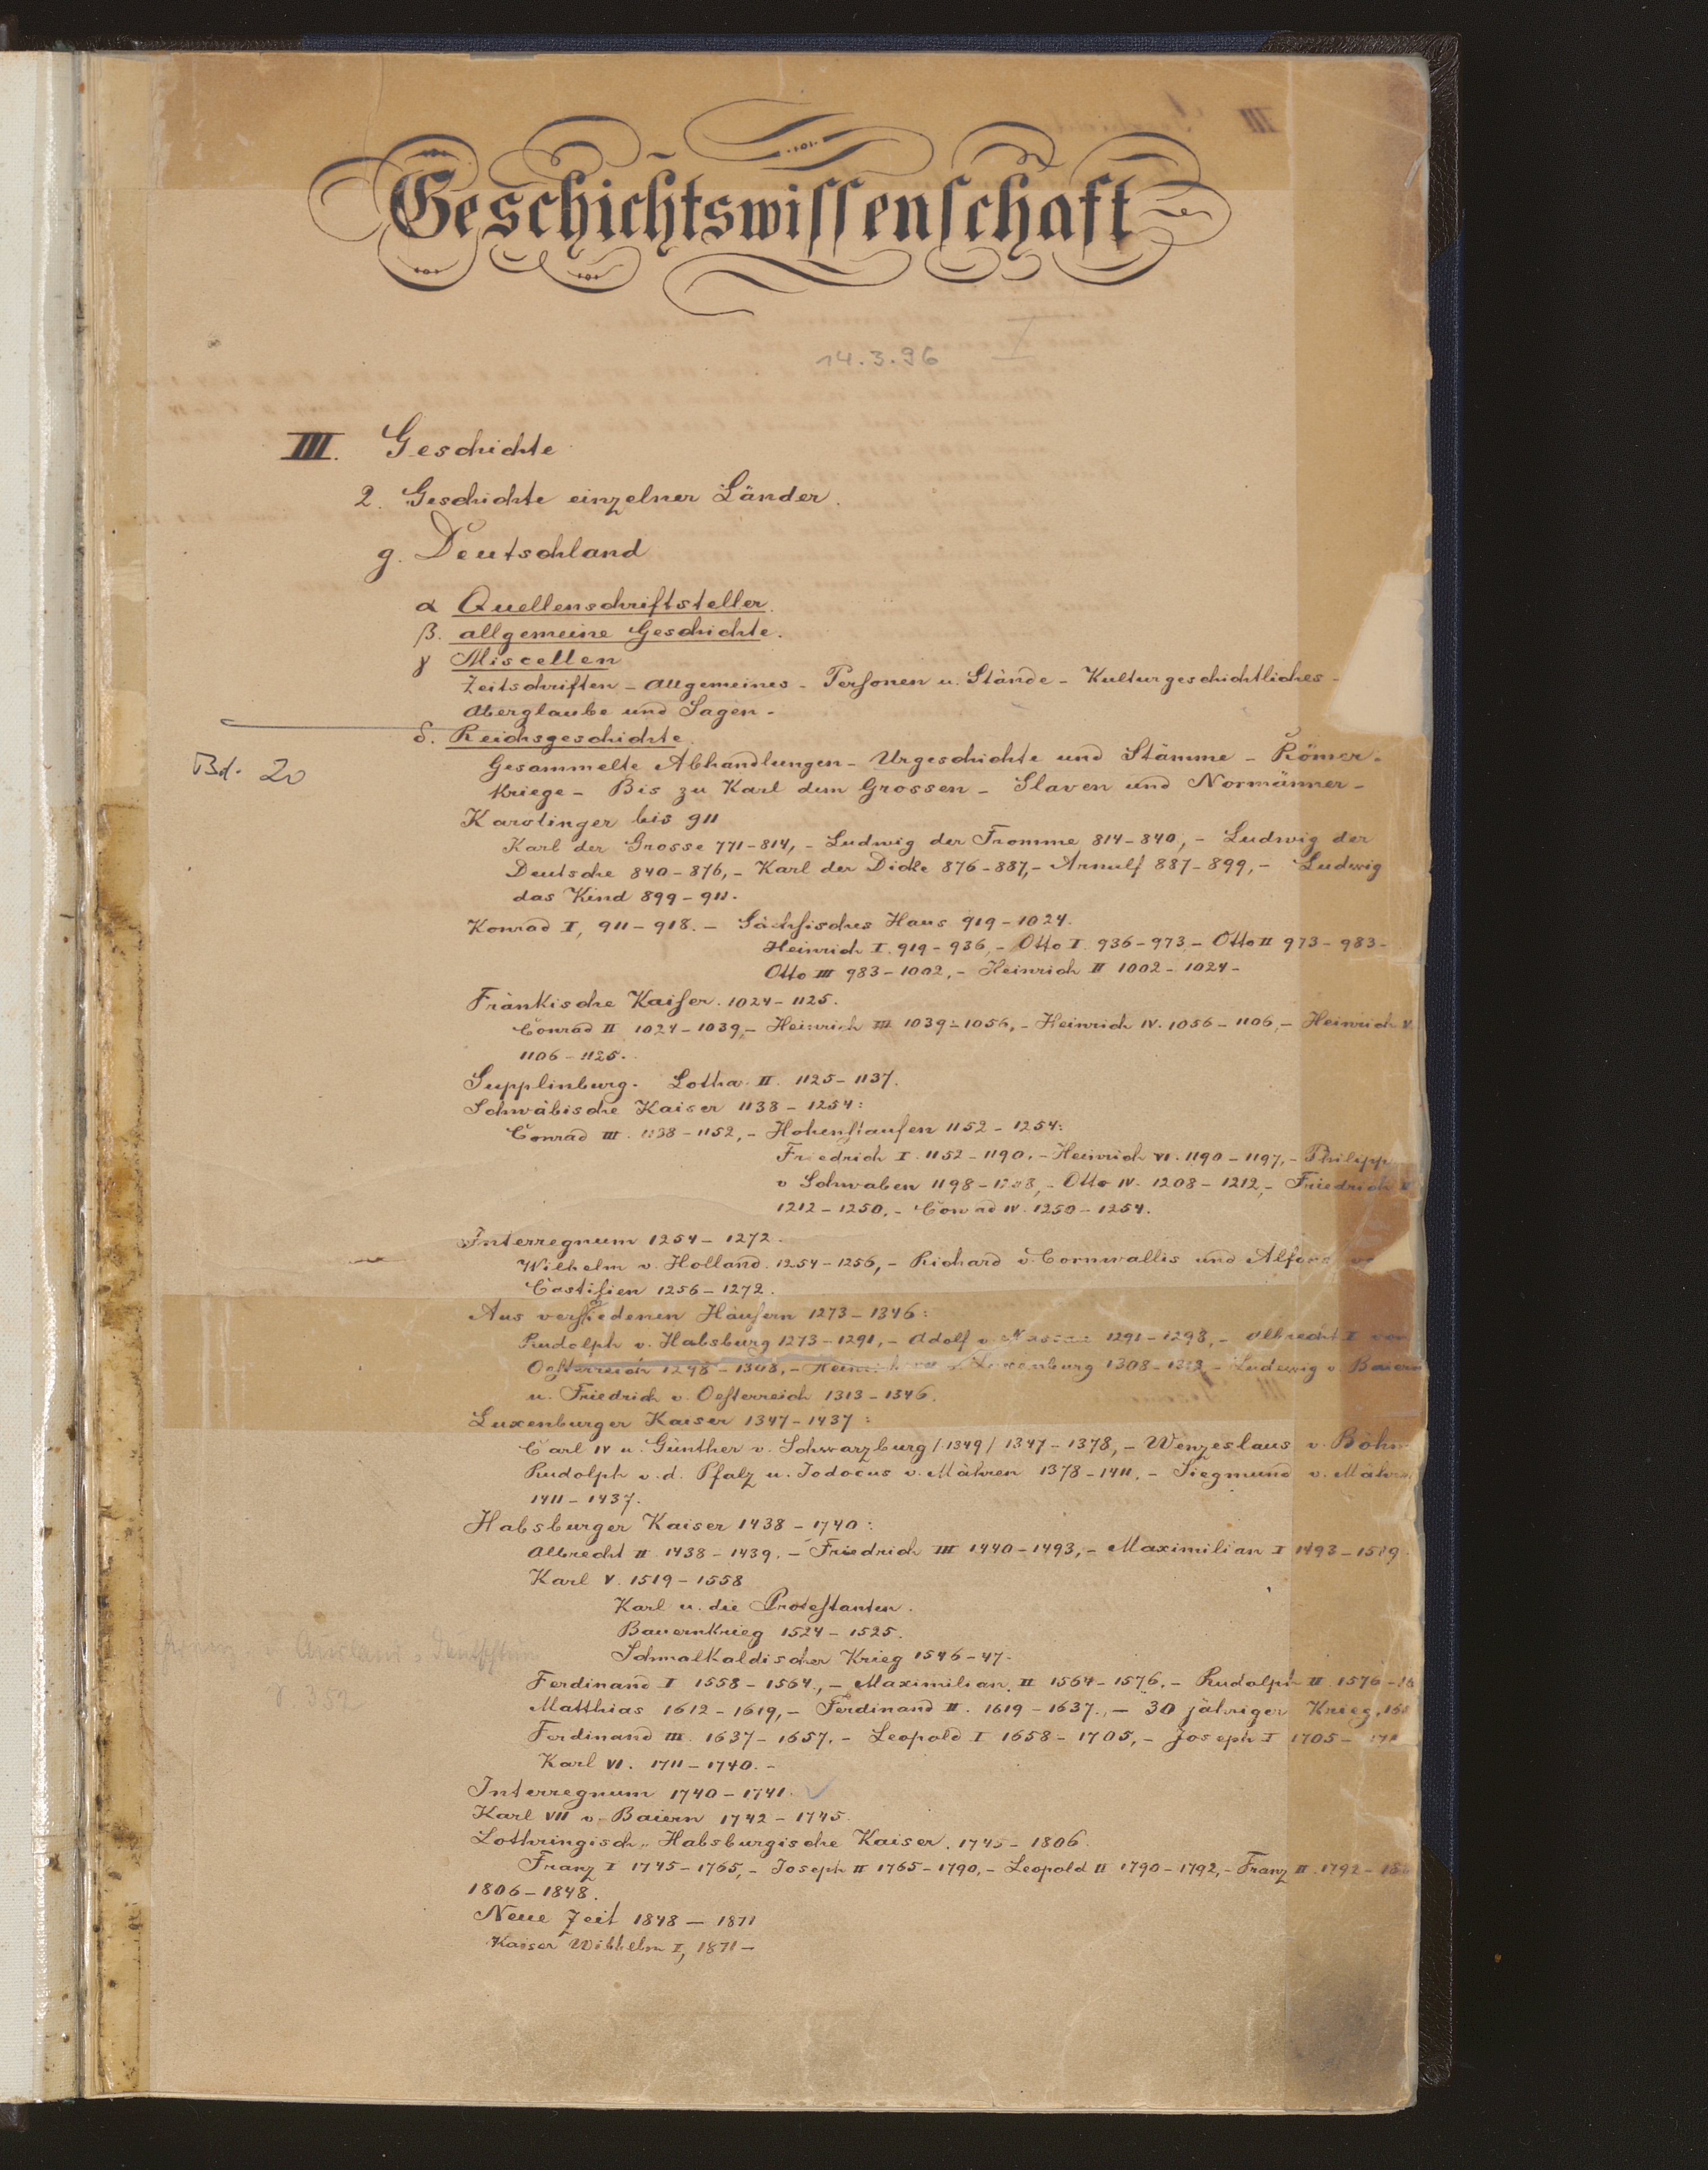 Geschichtswissenschaft
14.3.96
III. Geschichte
2. Geschichte einzelner Länder.
g. Deutschland
α Quellenschriftsteller.
β. allgemeine Geschichte.
γ Miscellen
Zeitschriften - Allgemeines - Personen u. Stände - Kulturgeschichtliches -
Aberglaube und Sagen -
δ. Reichsgeschichte.
Bd. 20
Gesammelte Abhandlungen - Urgeschichte und Stämme - Römer-
kriege - Bis zu Karl dem Grossen - Slaven und Normänner -
Karolinger bis 911
Karl der Grosse 771-814, - Ludwig der Fromme 814-840, - Ludwig der
Deutsche 840-876, - Karl der Dicke 876-887, - Arnulf 887-899, - Ludwig
das Kind 899-911.
Konrad I, 911-918. - Sächsisches Haus 919-1024.
Heinrich I. 919-936, - Otto I. 936-973 - Otto II 973-983-
Otto III 983-1002, - Heinrich II 1002-1024-
Fränkische Kaiser. 1024-1125.
Conrad II 1024-1039, - Heinrich III 1039-1056, - Heinrich IV. 1056-1106, - Heinrich V
1106-1125.
Supplinburg. Lothar II. 1125-1137.
Schwäbische Kaiser 1138-1254:
Conrad III. 1138-1152, - Hohenstaufen 1152-1254:
Friedrich I. 1152-1190. - Heinrich VI. 1190-1197, - Philipp
v Schwaben 1198-1208, - Otto IV. 1208-1212, - Friedrich II
1212-1250, - Conrad IV. 1250-1254.
Interregnum 1254-1272.
Wilhelm v. Holland. 1254-1256, - Richard v. Cornwallis und Alfons
Castilien 1256-1272.
Aus verschiedenen Häusern 1273-1346:
Rudolph v. Habsburg 1273-1291, - Adolf v. Nassau 1291-1298, - Albrecht I von
Oesterreich 1298-1308, - Heinrich Luxenburg 1308-1313, - Ludewig v. Baiern
u. Friedrich v. Oesterreich 1313-1346.
Luxenburger Kaiser 1347-1437:
Carl IV u. Günther v. Schwarzburg /1349/ 1347-1378, - Wenzeslaus v. Böhm
Rudolph v. d. Pfalz u. Jodocus v. Mähren 1378-1411. - Siegmund v. Mähr
1411-1437.
Habsburger Kaiser 1438-1740:
Albrecht II 1438-1439. - Friedrich III 1440-1493, - Maximilian I 1493-1519.
Karl V. 1519-1558
Karl u. die Protestanten.
Bauernkrieg 1524-1525.
Schmalkaldischer Krieg 1546-47.
Ausland
Ferdinand I 1558-1564, - Maximilian II 1564-1576. - Rudolph II 1576-16
Matthias 1612-1619, - Ferdinand II. 1619-1637., - 30 jähriger Krieg,
Ferdinand III. 1637-1657. - Leopold I 1658-1705, - Joseph I 1705-
Karl VI. 1711-1740. -
Interregnum 1740-1741.
Karl VII v. Baiern 1742-1745.
Lothringisch-Habsburgische Kaiser. 1745-1806.
Franz I 1745-1765, - Joseph II 1765-1790, - Leopold II 1790-1792, - Franz II. 1792-
1806-1848.
Neue Zeit 1848-1871
Kaiser Wilhelm I, 1871-